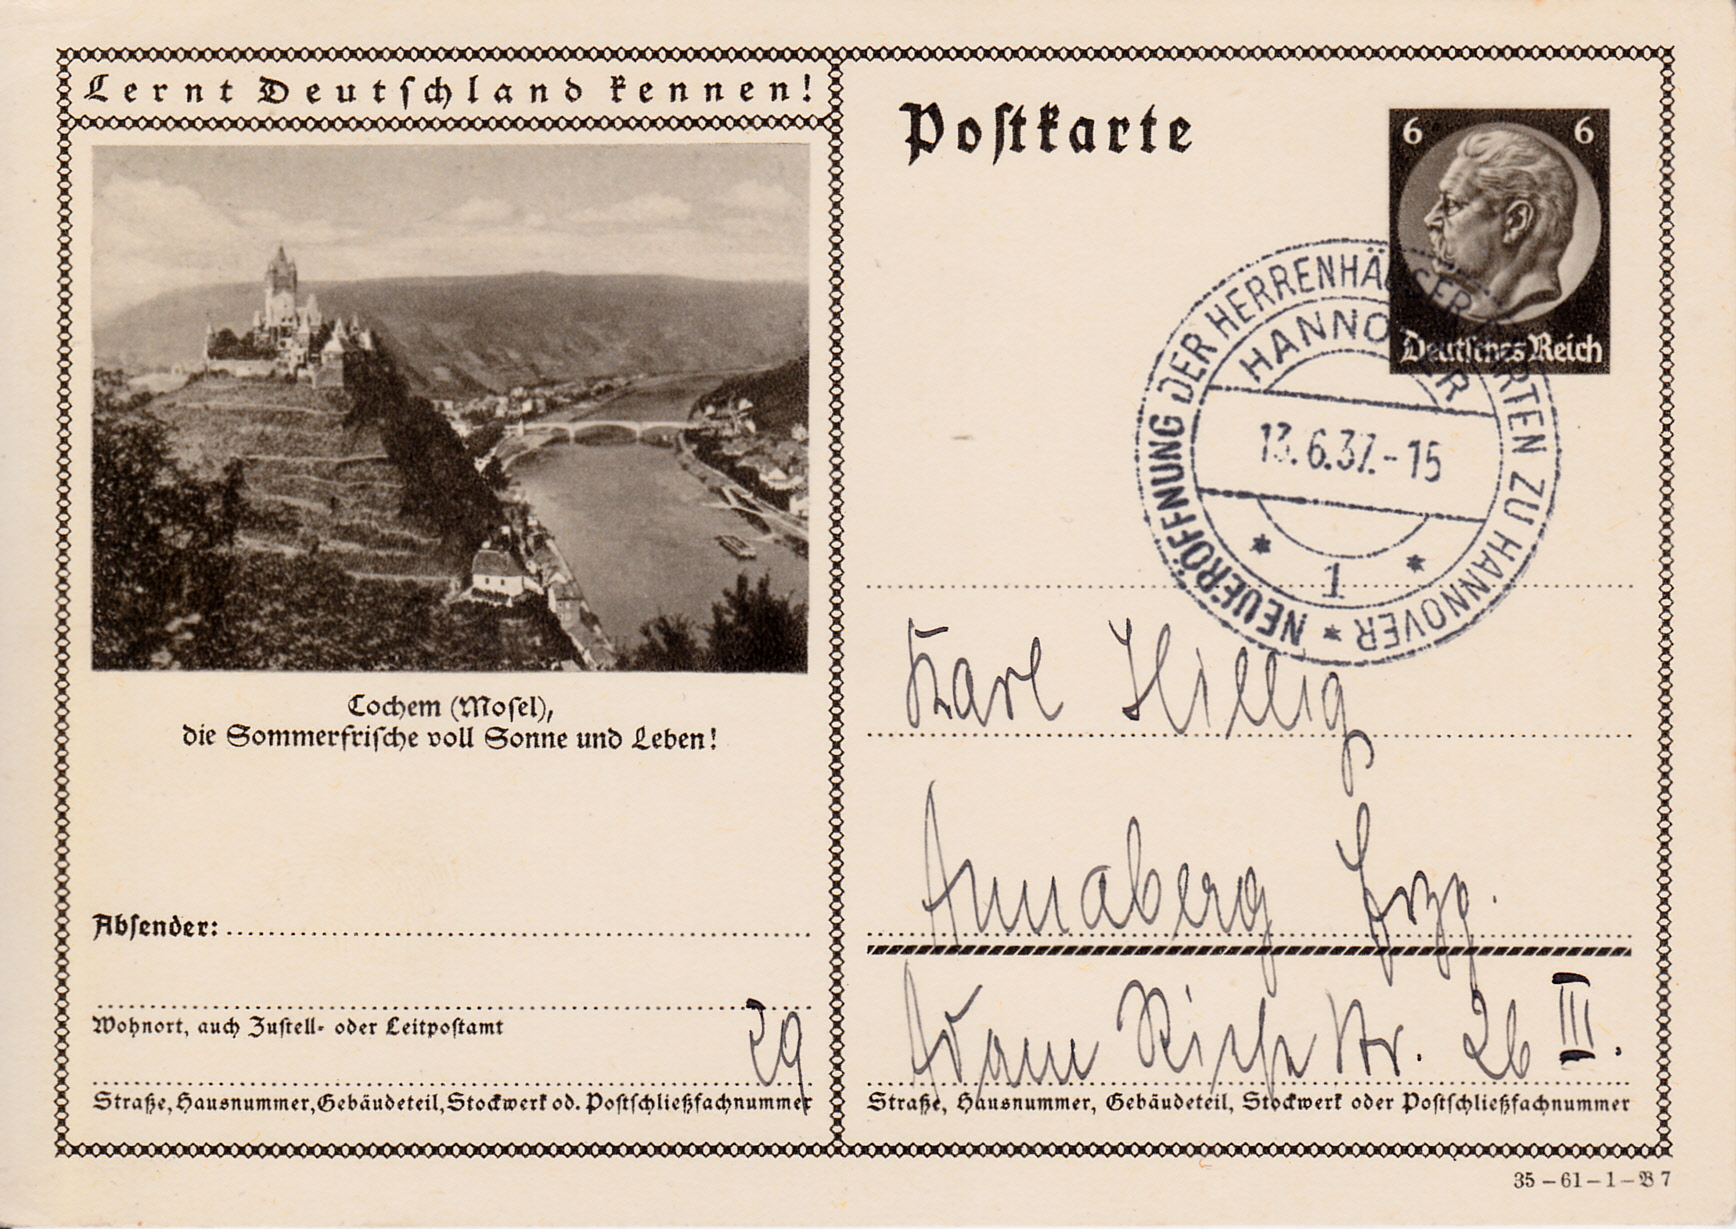 Lernt Deutschland kennen!
Cochem (Mosel),
die Sommerfrische voll Sonne und Leben!
Absender:
Wohnort, auch Zustell- oder Leitpostamt
29
Straße, Hausnummer, Gebäudeteil, Stockwerk od. Postschließfachnummer
Postkarte
6 6
Deutsches Reich
NEUERÖFFNUNG DER HERRENHÄUSER GÄRTEN ZU HANNOVER
HANNOVER
13.6.37.-15
1
Karl Hillig
Annaberg Erzg.
Adam Riese Str. 26 III.
Straße, Hausnummer, Gebäudeteil, Stockwerk oder Postschließfachnummer
35-61-1-B 7